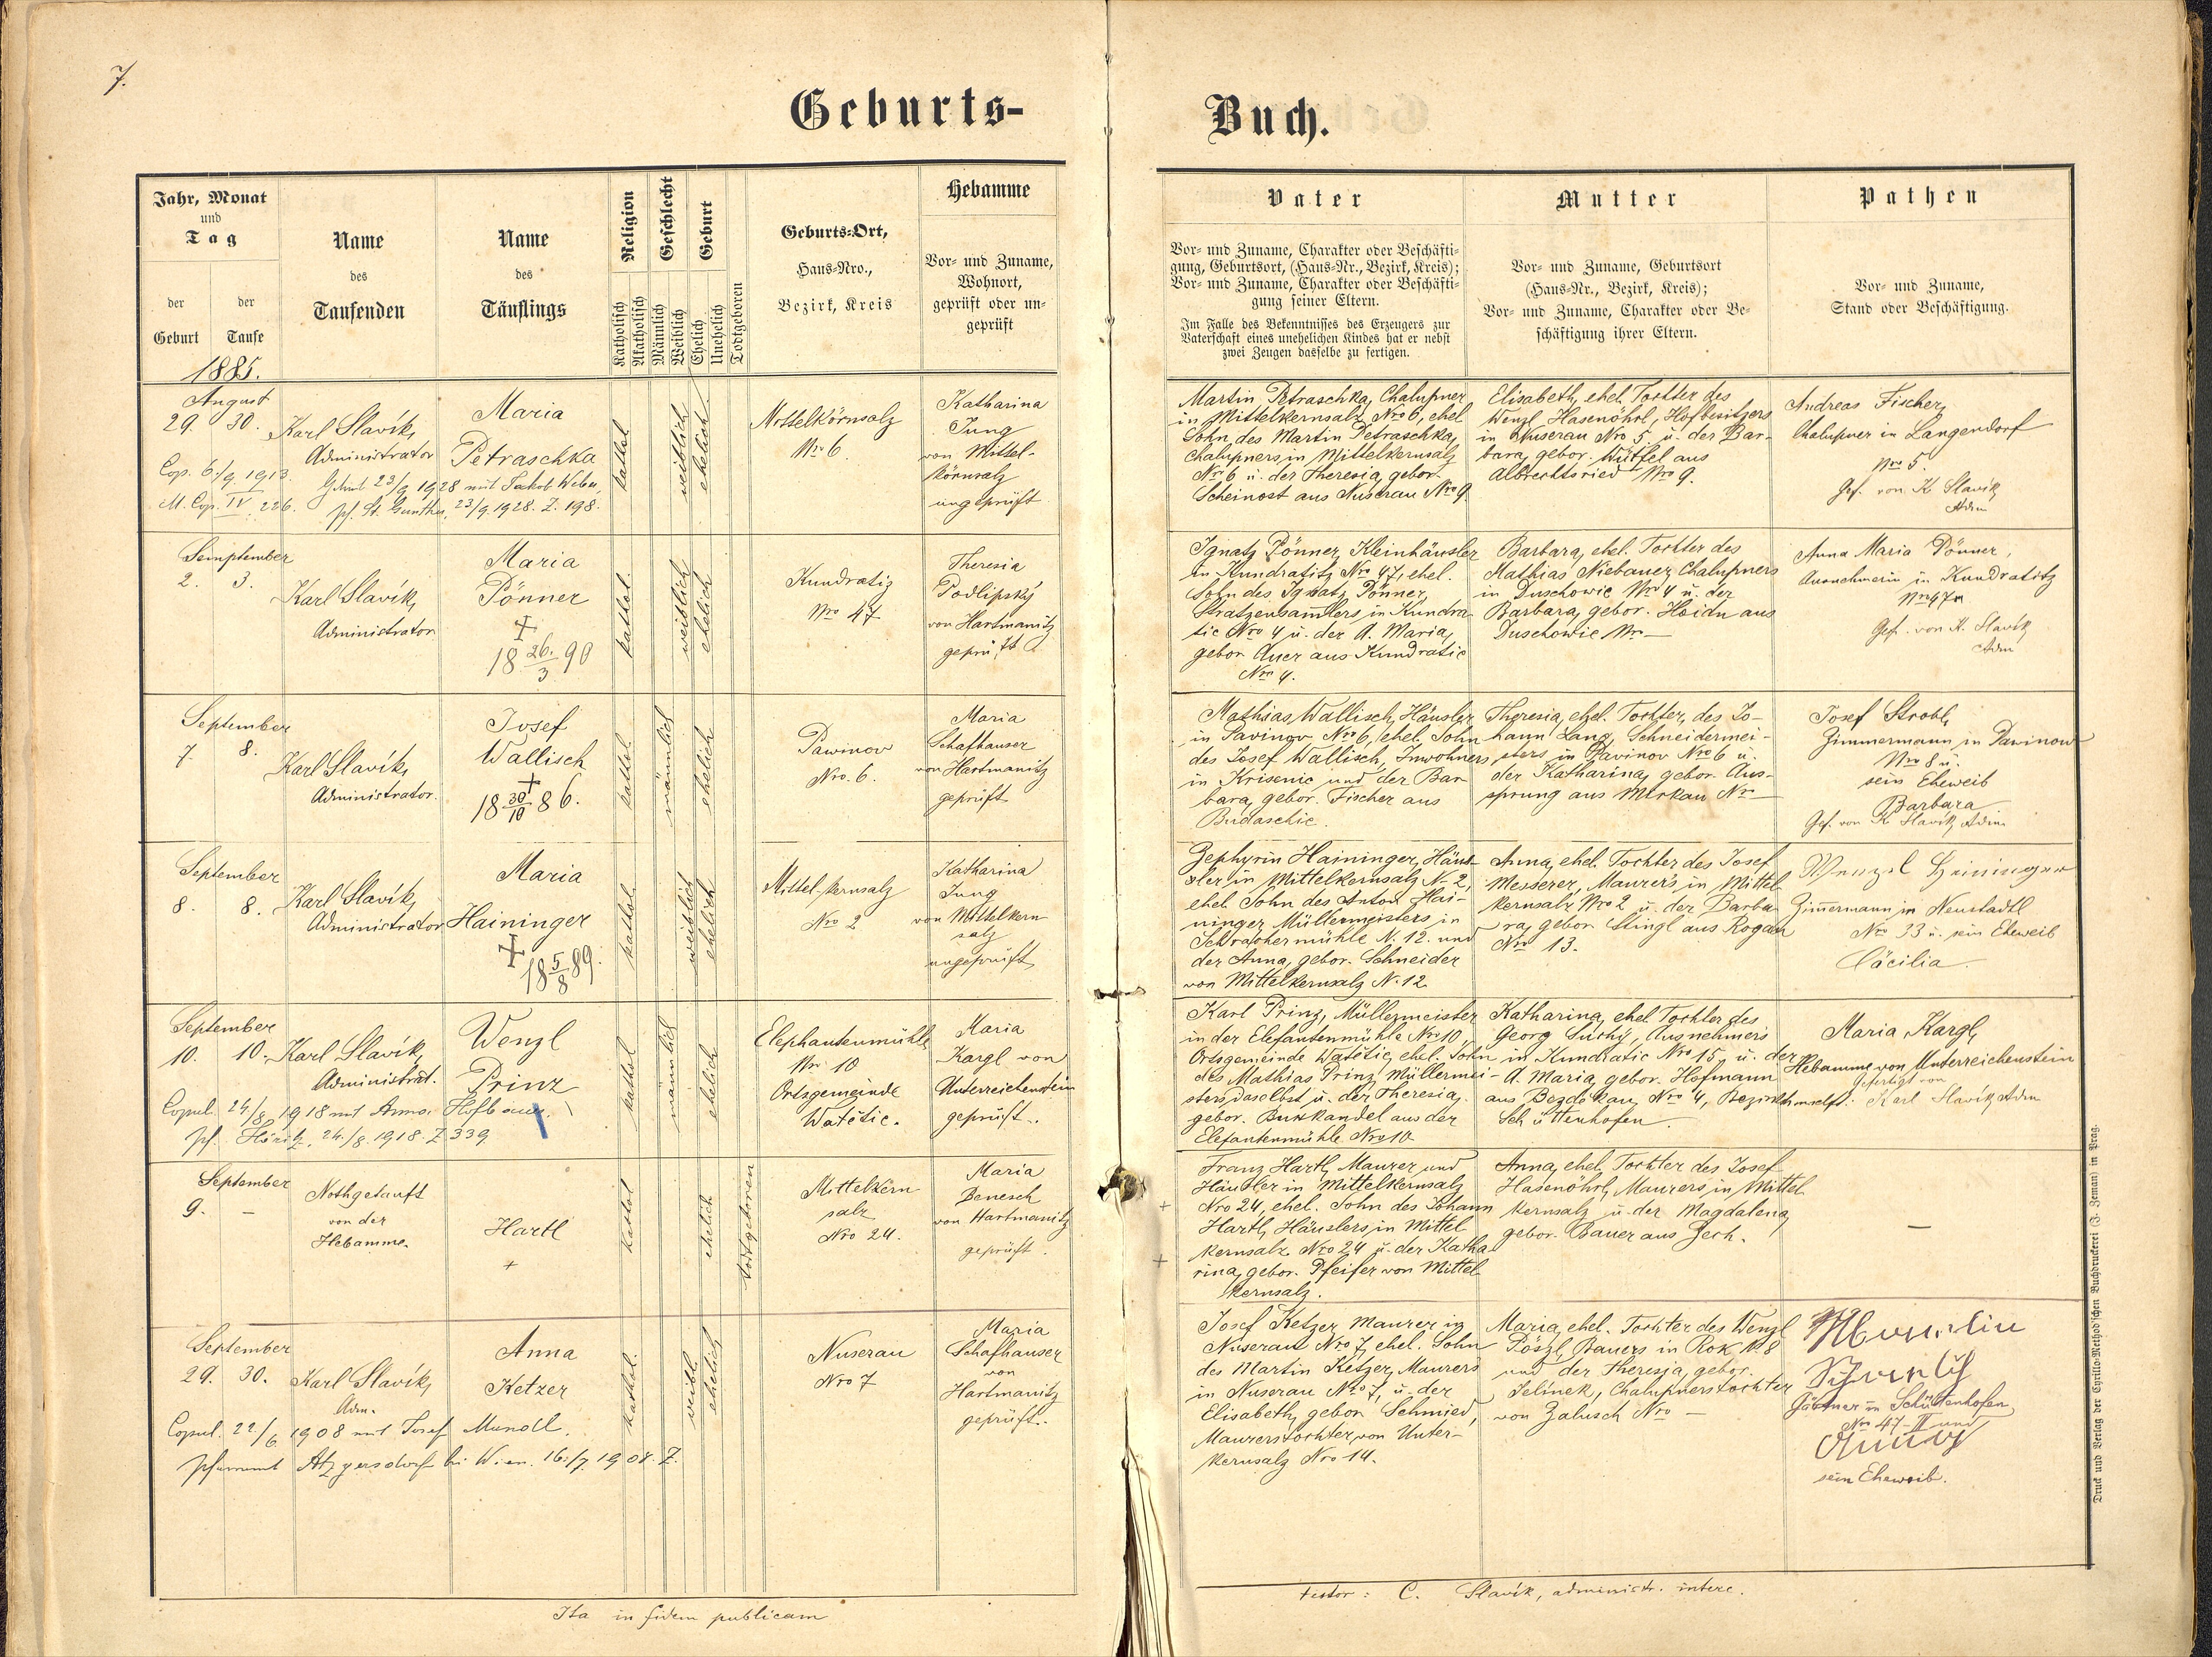 7.
Geburts-
Buch.
Jahr, Monat
und
Tag
der
Geburt
der
Taufe
Name
des
Taufenden
Name
des
Täuflings
Religion
Katholisch
Akatholisch
Geschlecht
Männlich
Weiblich
Geburt
Ehelich
Unehelich
Todtgeboren
Geburts-Ort,
Haus-Nro.,
Bezirk, Kreis
Hebamme
Vor- und Zuname,
Wohnort,
geprüft oder un-
geprüft
Vater
Vor- und Zuname, Charakter oder Beschäfti-
gung, Geburtsort, (Haus-Nr., Bezirk, Kreis);
Vor- und Zuname, Charakter oder Beschäfti-
gung seiner Eltern.
Im Falle des Bekenntnisses des Erzeugers zur
Vaterschaft eines unehelichen Kindes hat er nebst
zwei Zeugen dasselbe zu fertigen.
Mutter
Vor- und Zuname, Geburtsort
(Haus-Nr., Bezirk, Kreis);
Vor- und Zuname, Charakter oder Be-
schäftigung ihrer Eltern.
Pathen
Vor- und Zuname,
Stand oder Beschäftigung.
1885.
August
29. 30.
Karl Slavík,
Administrator
Maria
Petraschka
kathol.
weiblich
ehelich
Mittelkörnsalz
Nro 6.
Katharina
Jung
von Mittel-
körnsalz
ungeprüft
Cop. 6./9. 1913.
M. Cop. IV 226.
23/9 1928 mit Jakob Weber,
pf. St. Gunther, 23/9. 1928. Z. 198.
Martin Petraschka, Chalupner
in Mittelkernsalz Nro 6, ehel
Sohn des Martin Petraschka,
Chalupners in Mittelkernsalz
Nro 6 u. der Theresia, gebor.
Scheinost aus Nuserau Nro 9
Elisabeth, ehel. Tochter des
Wenzl Hasenöhrl, Hofbesitzers
in Nuserau Nro 5 u. der Bar-
bara, gebor. Würfel aus
Albrechtsried Nro 9.
Andreas Fischer,
Chalupner in Langendorf
Nro 5.
Gef. von K Slavík
Adm
Semptember
2. 3.
Karl Slavík,
Administrator
Maria
Pönner
+
18 26./3 90
kathol.
weiblich
ehelich
Kundratiz
Nro 47
Theresia
Podlipský
von Hartmanitz
geprüft
Ignatz Pönner, Kleinhäusler
in Kundratitz Nro 47, ehel.
Sohn des Ignatz Pönner,
Kratzensam̅lers in Kundra-
tic Nro 4 u. der A. Maria,
gebor Auer aus Kundratic
Nro 4.
Barbara, ehel. Tochter des
Mathias Niebauer, Chalupners
in Duschowic Nro 4 u. der
Barbara, gebor. Hoidn aus
Duschowic Nro —
Anna Maria Pönner,
Ausnehmerin in Kundratitz
Nro 47
Gef. von K. Slavík
Adm
September
7. 8.
Karl Slavík,
Administrator.
Josef
Wallisch
+
18 30/10 86.
kathol.
männlich
ehelich
Pawinov
Nro. 6.
Maria
Schafhauser
von Hartmanitz
geprüft
Mathias Wallisch, Häusler
in Pavinov Nro 6, ehel. Sohn
des Josef Wallisch, Inwohners
in Krisenic und der Bar-
bara, gebor. Fischer aus
Budaschic.
Theresia, ehel. Tochter, des Jo-
hann Lang, Schneidermei-
sters in Pavinov Nro 6 u.
der Katharina, gebor. Aus-
sprung aus Mirkau Nro —
Josef Strobl,
Zimmermann in Pawinow
Nro 8 u.
sein Eheweib
Barbara
Gef. von K Slavík, Adm.
September
8. 8.
Karl Slavík,
Administrator
Maria
Haininger
+
18 5/8 89.
kathol.
weiblich
ehelich
Mittel-kernsalz
Nro 2
Katharina
Jung
von Mittelkern-
salz
ungeprüft
Zephyrin Haininger, Häus-
sler in Mittelkernsalz N. 2,
ehel. Sohn des Anton Hai-
ninger, Müllermeisters in
Schracher mühle N. 12. und
der Anna, gebor. Schneider
von Mittelkernsalz N. 12.
Anna, ehel. Tochter des Josef
Messerer, Maurers in Mittel
kernsalz Nro 2 u. der Barba-
ra, gebor. Stingl aus Rogau
Nro 13.
Wenzel Heininger
Zim̅ermann in Neustadtl
Nro 33 u. sein Eheweib
Cäcilia.
September
10. 10.
Karl Slavík,
Administrat.
Wenzl
Prinz
kathol
männlich
ehelich
Elephantenmühle
Nro 10
Ortsgemeinde
Watětic.
Maria
Kargl von
Unterreichenstein
geprüft.
Copul. 24./8. 1918 mit Anna Hofbauer.
pf. Höritz, 24./8. 1918. Z 339
Karl Prinz, Müllermeister
in der Elefantenmühle Nro 10,
Ortsgemeinde Watětic, ehel. Sohn
des Mathias Prinz, Müllermei-
sters daselbst u. der Theresia,
gebor. Burkandel aus der
Elefantenmühle Nro 10
Katharina, ehel. Tochter des
Georg Suchý, Ausnehmers
in Kundratic Nro 15 u. der
A. Maria, gebor. Hofmann
aus Bezděkau, Nro 4, Bezirk
Schüttenhofen.
Maria Kargl,
Hebamme von Unterreichenstein
gefertigt von
Karl Slavík, Adm
September
9. —
Nothgetauft
von der
Hebamme.
Hartl
+
kathol
ehelich
todtgeboren
Mittelkern
salz
Nro 24.
Maria
Benesch
von Hartmanitz
geprüft.
Franz Hartl, Maurer und
Häusler in Mittelkernsalz
Nro 24, ehel. Sohn des Johann
Hartl, Häuslers in Mittel
kernsalz Nro 24 u. der Katha
rina, gebor. Pfeifer von Mittel
kernsalz.
Anna, ehel. Tochter des Josef
Hasenöhrl, Maurers in Mittel
kernsalz u. der Magdalena,
gebor. Bauer aus Zech.
—
September
29. 30.
Karl Slavík,
Adm.
Anna
Ketzer
kathol.
weibl.
ehelich
Nuserau
Nro 7
Maria
Schafhauser
von
Hartmanitz
geprüft.
Copul. 22./6. 1908 mit Josef Mundl.
Pfarramt Atzgersdorf bei Wien. 16./7. 1908. Z.
Josef Ketzer, Maurer in
Nuserau Nro 7, ehel. Sohn
des Martin Ketzer, Maurers
in Nuserau Nro 7, u. der
Elisabeth, gebor Schmied,
Maurerstochter, von Unter-
kernsalz Nro 14.
Maria, ehel. Tochter des Wenzl
Pöszl, Bauers in Rok N. 8
und der Theresia, gebor.
Jelínek, Chalupnerstochter
von Zalusch Nro —
Gärtner in Schüttenhofen
Nro 47-II und
sein Eheweib.
Ita in fidem publicam
testor: C. Slavík, administr. interc.
Druck und Verlag der Cyrillo-Method'schen Buchdruckerei (J. Zeman) in Prag.